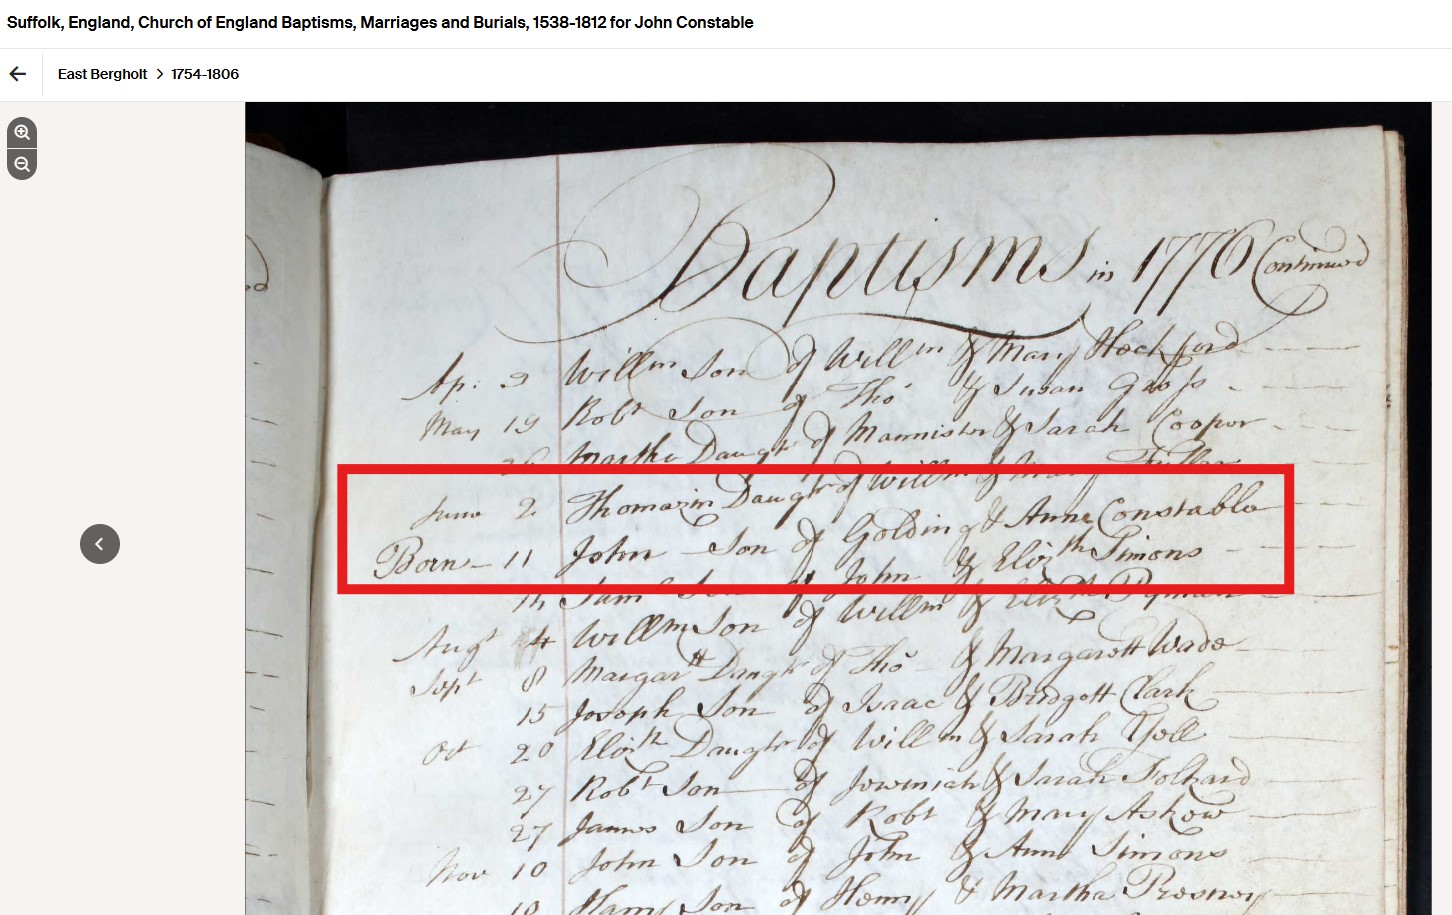 Suffolk, England, Church of England Baptisms, Marriages and Burials, 1538-1812 for John Constable
East Bergholt > 1754-1806
Baptisms in 1770 Continued
Ap: 3 Willm Son of Willm & Mary Hockford
May 19 Robt Son of Tho & Susan
26 Martha Daugr of Mannister & Sarah Cooper
June 2 Thomazin Daugr of Willm & Mary Fuller
Born 11 John Son of Golding & Ann Constable
14 Sam Son of John & Elizth Simons
Augt 4 Willm Son of Willm & Elizth Pyman
Sept 8 Margartt Daugr of Tho & Margarett Wade
15 Joseph Son of Isaac & Bridgett Clark
Oct 20 Elizth Daugtr of Willm & Sarah
27 Robt Son of Jeremiah & Sarah Folkard
27 James Son of Robt & Mary Askew
Nov 10 John Son of John & Ann Simons
10 Son of Henry & Martha